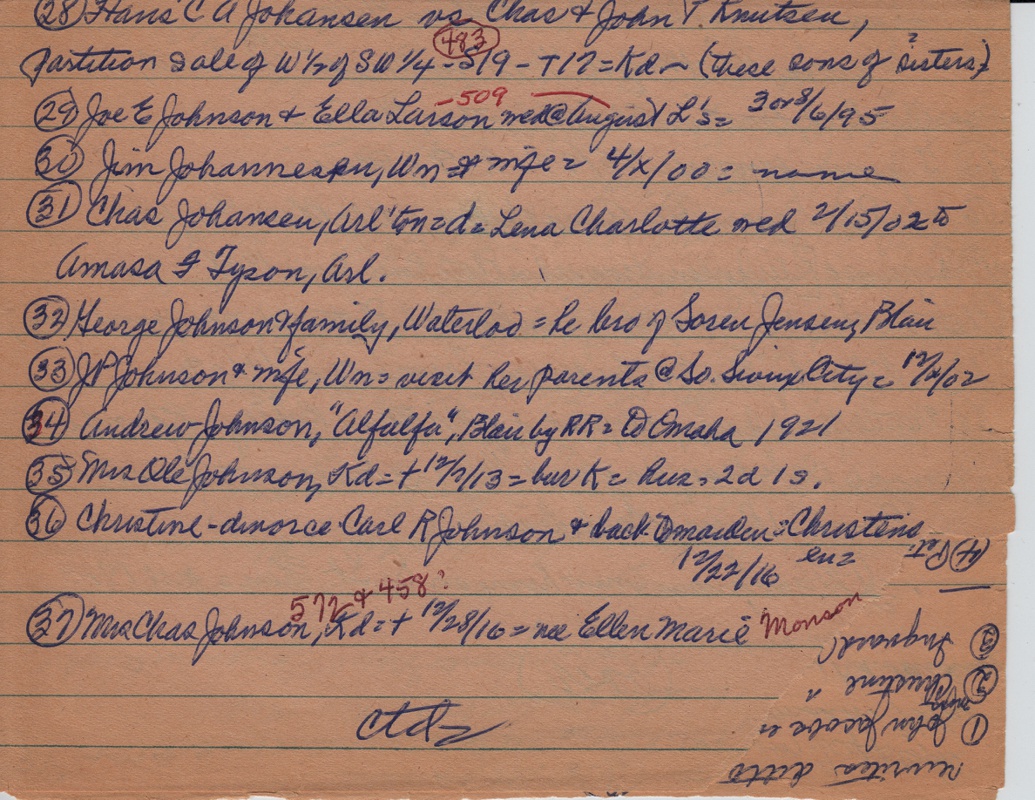 (28) Hans C A Johansen vs. Chas & John T. Knutsen,
483
Partition sale of W½ of SW¼ - S19 - T17 = Kd ~ (these sons of sisters?)
- 509
(29) Joe E Johnson & Ella Larson med @ August L's = 3 or 8/6/95
(30) Jim Johannesen, Wn = & wife = 4/x/00 = name
(31) Chas Johansen, Arl'ton = d = Lena Charlotte med 2/15/02 to
Amasa F Tyson, Arl.
(32) George Johnson & family, Waterloo = he bro of Soren Jensen, Blair
(33) JP Johnson & wife, Wn = visit her parents @ So. Sioux City = 12/x/02
(34) Andrew Johnson, "Alfalfa", Blair by RR = to Omaha 1921
(35) Mrs Ole Johnson, Kd = + 12/2/13 = bur K = hus = 2d 1s.
(36) Christine - divorce Carl R Johnson & back to maiden = Christens
en = 12/22/16
572 & 458?
(37) Mrs Chas Johnson, Kd = + 12/28/16 = nee Ellen Marie Monson
ctd =
rewrites ditto
(1) John Jacobsen
(2) Christine "
(3) Ingvard
(4) Pat.